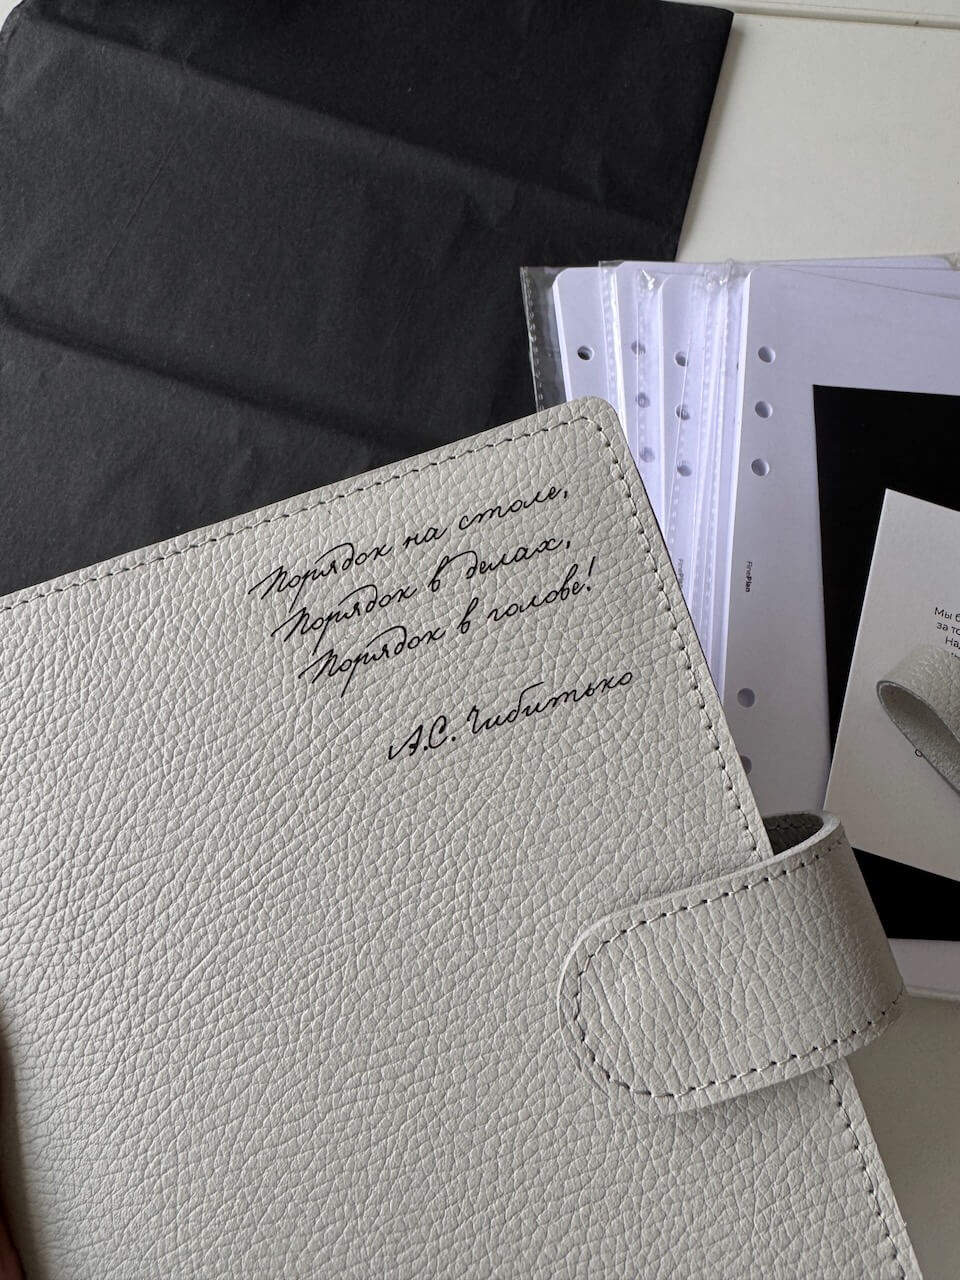 Порядок на столе,
Порядок в делах,
Порядок в голове!
А.С. Чибитько
FinePlan
Мы б
за то
На